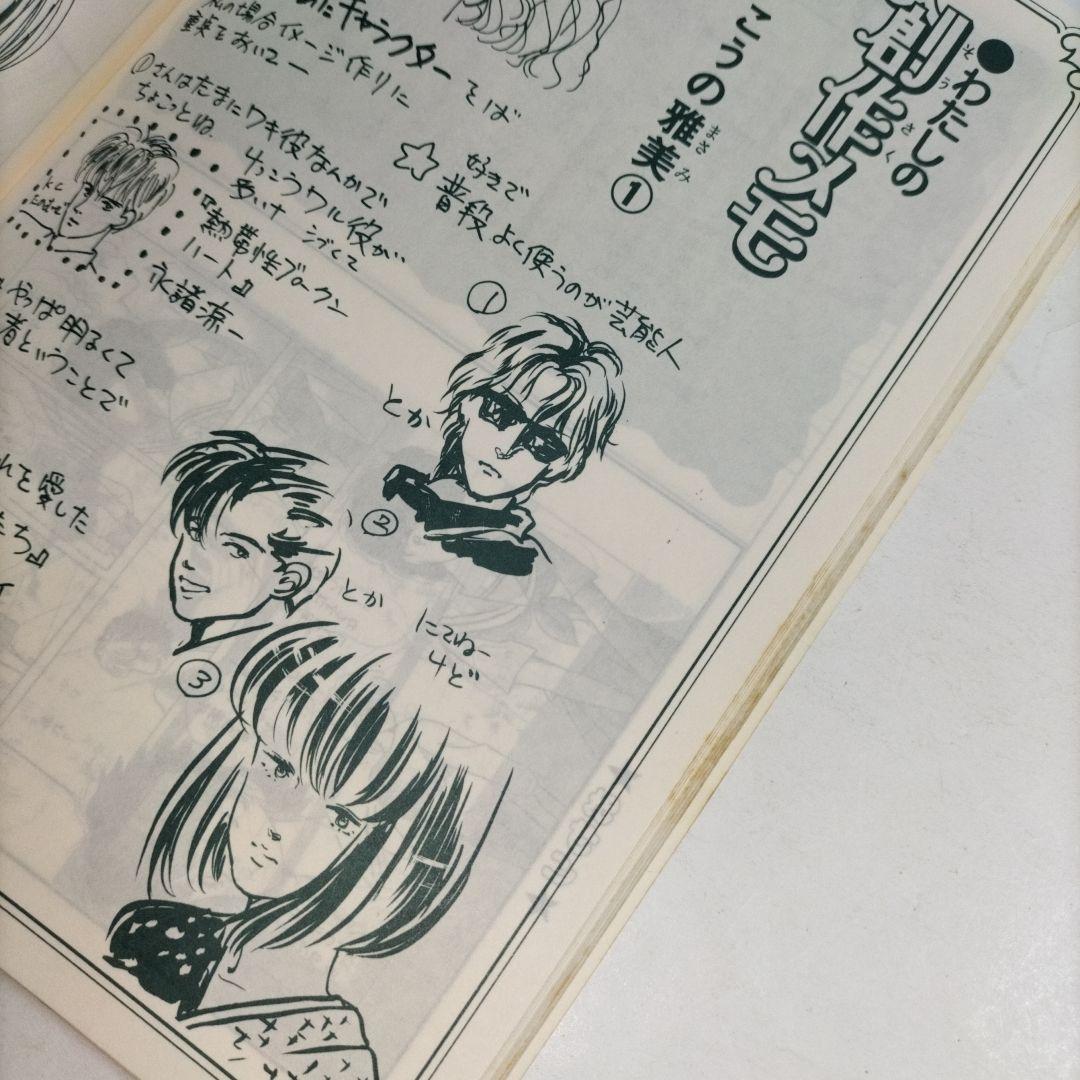 ●わたしの
創作メモ
そうさく
こうの雅美①
まさみ
キャラクター
そば
私の場合イメージ作りに
重点をおいてー
☆
好きで
普段よく使うのが芸能人
①
とか
②
とか
③
にてねー
けど
①さんはたまにワキ役なんかで
ちょこっとね
けっこうワル役が
多い
『熱帯性ブロークン
ハート』
永諸涼一
KC
やっぱ明るくて
者ということで
れを愛した
たち』